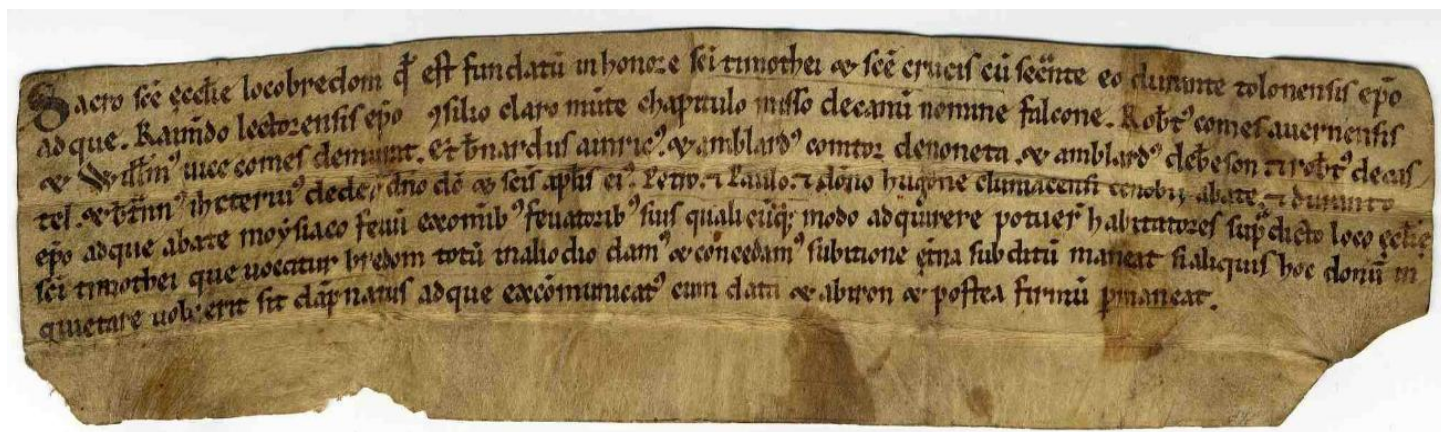 Sacro sc̄e ęccłie locobredom qđ est fundatū in honore sc̄i timothei & sc̄e crucis cū sec̄nte eo durante tolonensis ep̄o
adque. Raim̄do lectorensis ep̄o ꝯsilio claro mūte chapitulo misso decanū nomine falcone. Rob̄tꝰ comes auernensis
& Willm̄ꝰ uice comes demurat. Et b̄nardus ainricꝰ. & amblardꝰ comtor denoneta. & amblardꝰ deb̄eson ⁊ rob̄tꝰ decas
tel. & deder̄ dn̄o dō & sc̄is ap̄lis eiꝰ. Petro. ⁊ Paulo. ⁊ dōno hugone cluniacensi cenobij abate ⁊ duranto
ep̄o adque abate moysiaco feuū exomībꝰ feuatoribꝰ suis qualicūq; modo adquirere potuer̄ habitatores sup̄dicto loco ęccłie
sc̄i timothei que uocatur bredom totū inaliodio damꝰ & concedamꝰ subitione ęt̄na subditū maneat si aliquis hoc donū in
quietare uoluerit sit dāpnatus adque excōmunicatꝰ cum datā & abiron & postea firmū p̄maneat.